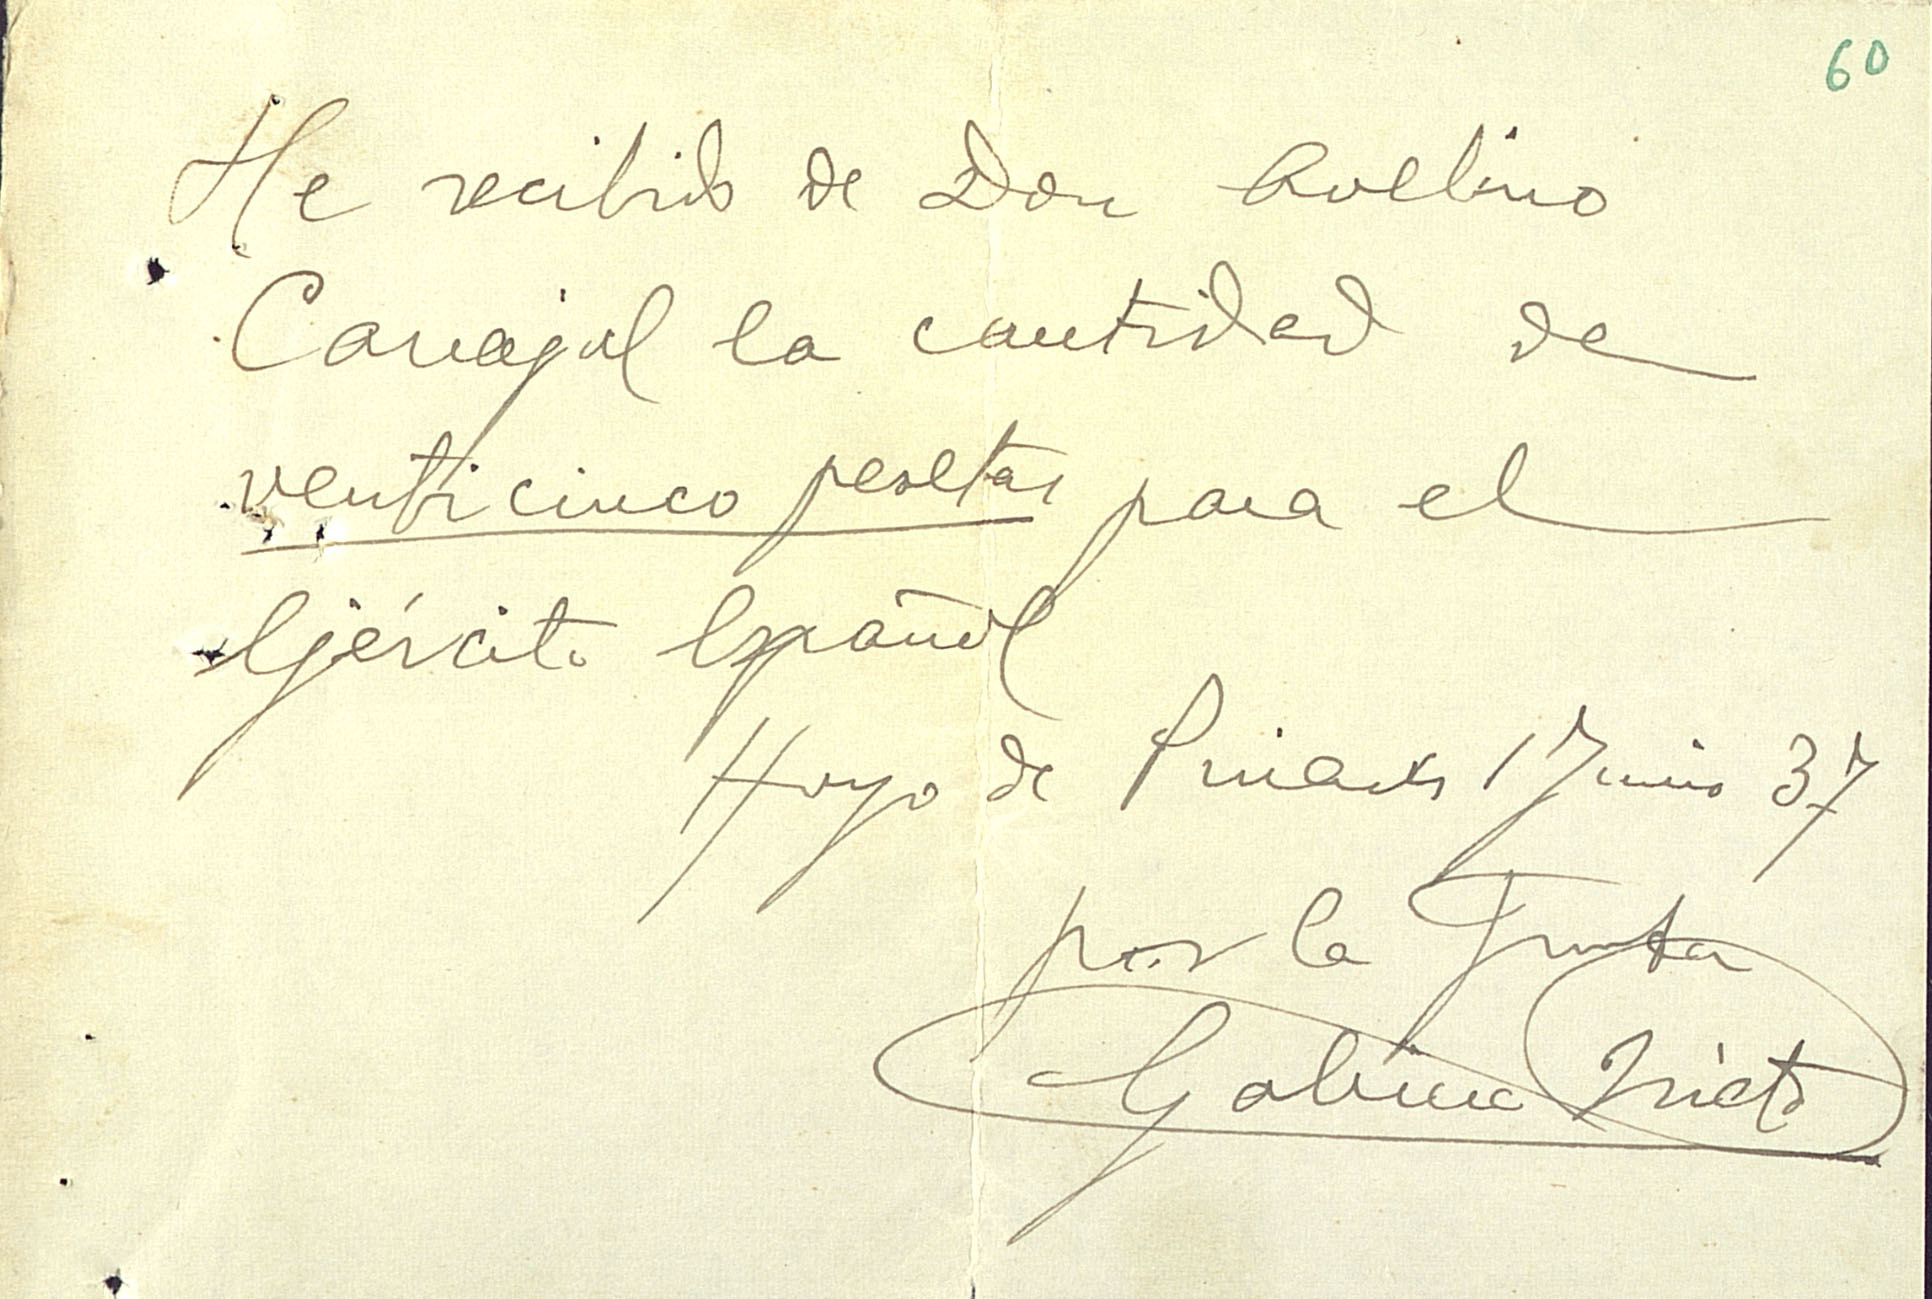 60
He recibido de Don Avelino
Carvajal la cantidad de
venticinco pesetas para el
Ejército Español
Hoyo de Pinares 1 Junio 37
por la Junta
Gabina Prieto